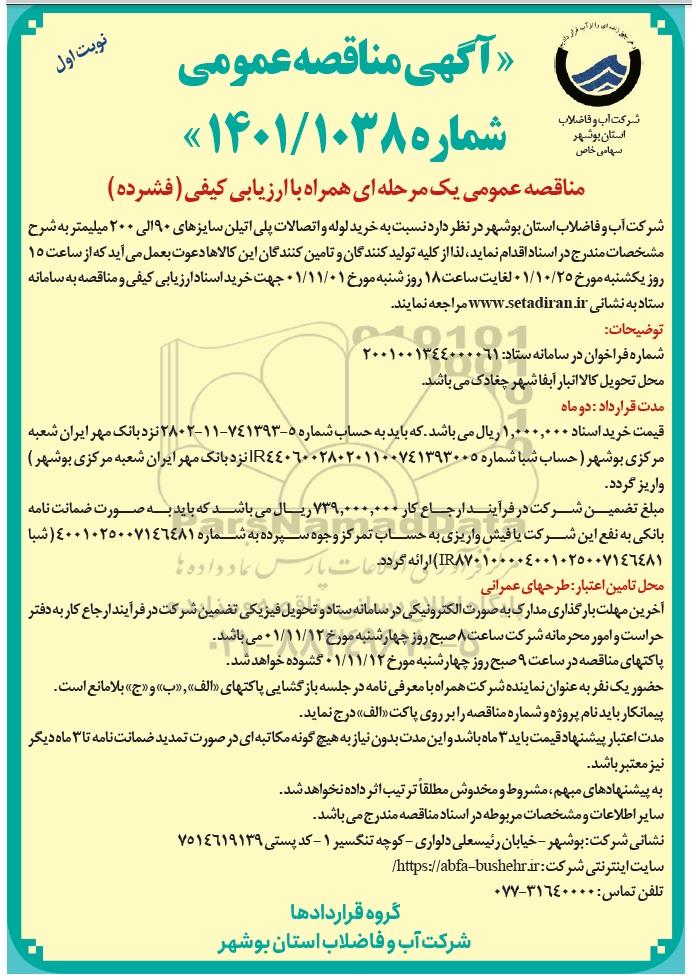 نوبت اول
« آگهی مناقصه عمومی
شماره ۱۴۰۱/۱۰۳۸ »
شرکت آب و فاضلاب
استان بوشهر
سهامی خاص
مناقصه عمومی یک مرحله ای همراه با ارزیابی کیفی ( فشرده )
شرکت آب و فاضلاب استان بوشهر در نظر دارد نسبت به خرید لوله و اتصالات پلی اتیلن سایزهای ۹۰ الی ۲۰۰ میلیمتر به شرح
مشخصات مندرج در اسناد اقدام نماید، لذا از کلیه تولید کنندگان و تامین کنندگان این کالاها دعوت بعمل می آید که از ساعت ۱۵
روز یکشنبه مورخ ۰۱/۱۰/۲۵ لغایت ساعت ۱۸ روز شنبه مورخ ۰۱/۱۱/۰۱ جهت خرید اسناد ارزیابی کیفی و مناقصه به سامانه
ستاد به نشانی www.setadiran.ir مراجعه نمایند.
توضیحات:
شماره فراخوان در سامانه ستاد: ۲۰۰۱۰۰۱۳۴۴۰۰۰۰۶۱
محل تحویل کالا انبار آبفا شهر چغادک می باشد.
مدت قرارداد : دو ماه
قیمت خرید اسناد ۱,۰۰۰,۰۰۰ ریال می باشد . که باید به حساب شماره ۵-۷۴۱۳۹۳-۱۱-۲۸۰۲ نزد بانک مهر ایران شعبه
مرکزی بوشهر ( حساب شبا شماره IR۴۴۰۶۰۰۲۸۰۲۰۱۱۰۰۷۴۱۳۹۳۰۰۵ نزد بانک مهر ایران شعبه مرکزی بوشهر )
واریز گردد.
مبلغ تضمین شرکت در فرآیند ارجاع کار ۷۳۹,۰۰۰,۰۰۰ ریال می باشد که باید به صورت ضمانت نامه
بانکی به نفع این شرکت یا فیش واریزی به حساب تمرکز وجوه سپرده به شماره ۴۰۰۱۰۲۵۰۰۷۱۴۶۴۸۱ ( شبا
IR۸۷۰۱۰۰۰۰۴۰۰۱۰۲۵۰۰۷۱۴۶۴۸۱ ) ارائه گردد.
محل تامین اعتبار : طرحهای عمرانی
آخرین مهلت بارگذاری مدارک به صورت الکترونیکی در سامانه ستاد و تحویل فیزیکی تضمین شرکت در فرآیند ارجاع کار به دفتر
حراست و امور محرمانه شرکت ساعت ۸ صبح روز چهارشنبه مورخ ۰۱/۱۱/۱۲ می باشد.
پاکتهای مناقصه در ساعت ۹ صبح روز چهارشنبه مورخ ۰۱/۱۱/۱۲ گشوده خواهد شد.
حضور یک نفر به عنوان نماینده شرکت همراه با معرفی نامه در جلسه بازگشایی پاکتهای «الف» ,«ب» و «ج» بلامانع است .
پیمانکار باید نام پروژه و شماره مناقصه را بر روی پاکت «الف» درج نماید.
مدت اعتبار پیشنهاد قیمت باید ۳ ماه باشد و این مدت بدون نیاز به هیچ گونه مکاتبه ای در صورت تمدید ضمانت نامه تا ۳ ماه دیگر
نیز معتبر باشد.
به پیشنهادهای مبهم ، مشروط و مخدوش مطلقاً ترتیب اثر داده نخواهد شد.
سایر اطلاعات و مشخصات مربوطه در اسناد مناقصه مندرج می باشد .
نشانی شرکت : بوشهر - خیابان رئیسعلی دلواری - کوچه تنگسیر ۱ - کد پستی ۷۵۱۴۶۱۹۱۳۹
سایت اینترنتی شرکت: https://abfa-bushehr.ir/
تلفن تماس : ۰۷۷-۳۱۶۴۰۰۰۰
گروه قراردادها
شرکت آب و فاضلاب استان بوشهر
ParsNamadData